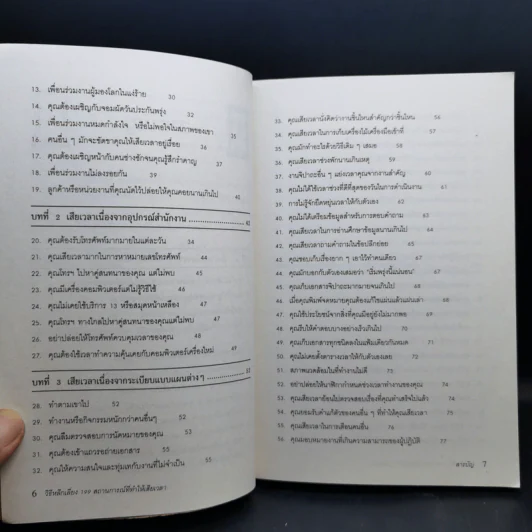 13. เพื่อนร่วมงานผู้มองโลกในแง่ร้าย 30
14. คุณต้องเผชิญกับจอมผัดวันประกันพรุ่ง 32
15. เพื่อนร่วมงานหมดกำลังใจ หรือไม่พอใจในสภาพของเขา 35
16. คนอื่น ๆ มักจะขัดขาคุณให้เสียเวลาอยู่เรื่อย
17. คุณต้องเผชิญหน้ากับคนช่างซักจนคุณรู้สึกรำคาญ
18. เพื่อนร่วมงานไม่ลงรอยกัน
19. ลูกค้าหรือหน่วยงานที่คุณนัดไว้ปล่อยให้คุณคอยนานเกินไป
บทที่ 2 เสียเวลาเนื่องจากอุปกรณ์สำนักงาน 43
20. คุณต้องรับโทรศัพท์มากมายในแต่ละวัน 44
21. คุณเสียเวลามากในการหาหมายเลขโทรศัพท์ 44
22. คุณโทรฯ ไปหาคู่สนทนาของคุณ แต่ไม่พบ 45
23. คุณมีเครื่องคอมพิวเตอร์แต่ไม่รู้วิธีใช้ 46
24. คุณไม่เคยใช้บริการ 13 หรือสมุดหน้าเหลือง
25. คุณโทรฯ ทางไกลไปหาคู่สนทนาของคุณแต่ไม่พบ 47
26. อย่าปล่อยให้โทรศัพท์ควบคุมเวลาของคุณ 48
27. คุณต้องใช้เวลาทำความคุ้นเคยกับคอมพิวเตอร์เครื่องใหม่ 49
บทที่ 3 เสียเวลาเนื่องจากระเบียบแบบแผนต่างๆ 51
28. ทำตามเขาไป 52
29. ทำงานหรือกิจกรรมหนักกว่าคนอื่นๆ
30. คุณลืมตรวจสอบการนัดหมายของคุณ 53
31. คุณต้องเข้าแถวรอถ่ายเอกสาร 55
32. คุณให้ความสนใจและทุ่มเทกับงานที่ไม่จำเป็น 55
6 วิธีหลีกเลี่ยง 199 สถานการณ์ที่ทำให้เสียเวลา
33. คุณเสียเวลานั่งคิดว่างานชิ้นไหนสำคัญกว่าชิ้นไหน 56
34. คุณเสียเวลาในการเก็บเครื่องไม้เครื่องมือเข้าที่
35. คุณมักทำอะไรด้วยวิธีเดิม ๆ เสมอ 58
36. คุณเสียเวลาช่วงพักนานเกินเหตุ
37. งานจิปาถะอื่น ๆ แย่งเวลาคุณจากงานสำคัญ
38. คุณไม่ได้ใช้เวลาช่วงที่ดีที่สุดของวันในการดำเนินงาน
39. การไม่รู้จักยืดหยุ่นเวลาให้กับตัวเอง
40. คุณไม่ได้เตรียมข้อมูลสำหรับการตอบคำถาม
41. คุณเสียเวลาในการอ่านศึกษาข้อมูลนานเกินไป
42. คุณเสียเวลาถามคำถามในข้อปลีกย่อย 64
43. คุณชอบเก็บเรื่องยาก ๆ เอาไว้ทำคนเดียว
44. คุณมักบอกกับตัวเองเสมอว่า "เริ่มพรุ่งนี้แน่นอน"
45. คุณเก็บเอกสารจิปาถะมากมายจนเกินไป 67
46. เมื่อคุณพิมพ์จดหมายคุณต้องแก้ไขแผ่นแล้วแผ่นเล่า 68
47. คุณใช้ประโยชน์จากสิ่งที่คุณมีอยู่ยังไม่มากพอ 69
48. คุณรีบให้คำตอบบางอย่างเร็วเกินไป 70
49. คุณเก็บเอกสารทุกชนิดลงในแฟ้มเดียวกันหมด 71
50. คุณไม่เคยตั้งตารางเวลาให้กับตัวเองเลย
51. สภาพแวดล้อมในที่ทำงานไม่ดี
52. อย่าปล่อยให้นาฬิกากำหนดช่วงเวลาทำงานของคุณ 74
53. คุณเสียเวลาย้อนไปตรวจสอบเรื่องที่คุณทำเสร็จไปแล้ว
54. คุณยอมรับคำแก้ตัวของคนอื่น ๆ ที่ทำให้คุณเสียเวลา
55. คุณเสียเวลาในการเตือนคนอื่น 76
56. คุณมอบหมายงานที่เกินความสามารถของผู้ปฏิบัติ 77
สารบัญ 7